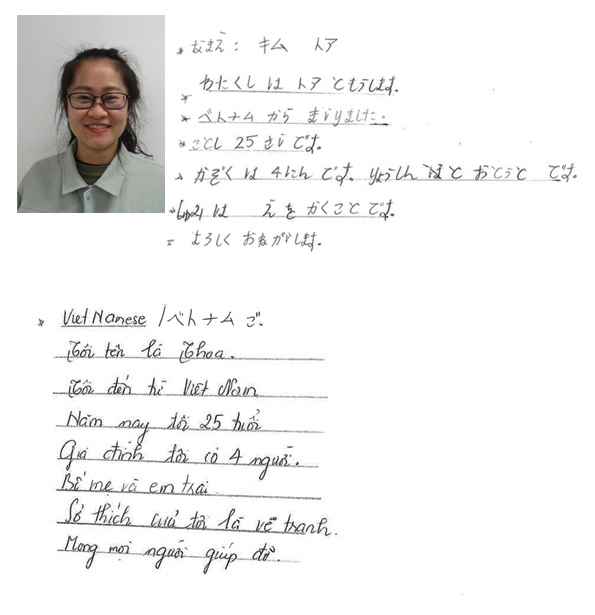 * なまえ: キム トア
* わたくし は トア ともうします。
* ベトナム から まいりました。
* ことし 25 さい です。
* かぞく は 4にん です。 りょうしん ほと おとうと です。
* しゅみ は え を かくこと です。
= よろしく おねがします。
* Viet Namese / ベトナム ご.
Tôi tên là Thoa.
Tôi đến từ Việt Nam
Năm nay tôi 25 tuổi
Gia đình tôi có 4 người.
Bố mẹ và em trai
Sở thích của tôi là vẽ tranh.
Mong mọi người giúp đỡ.